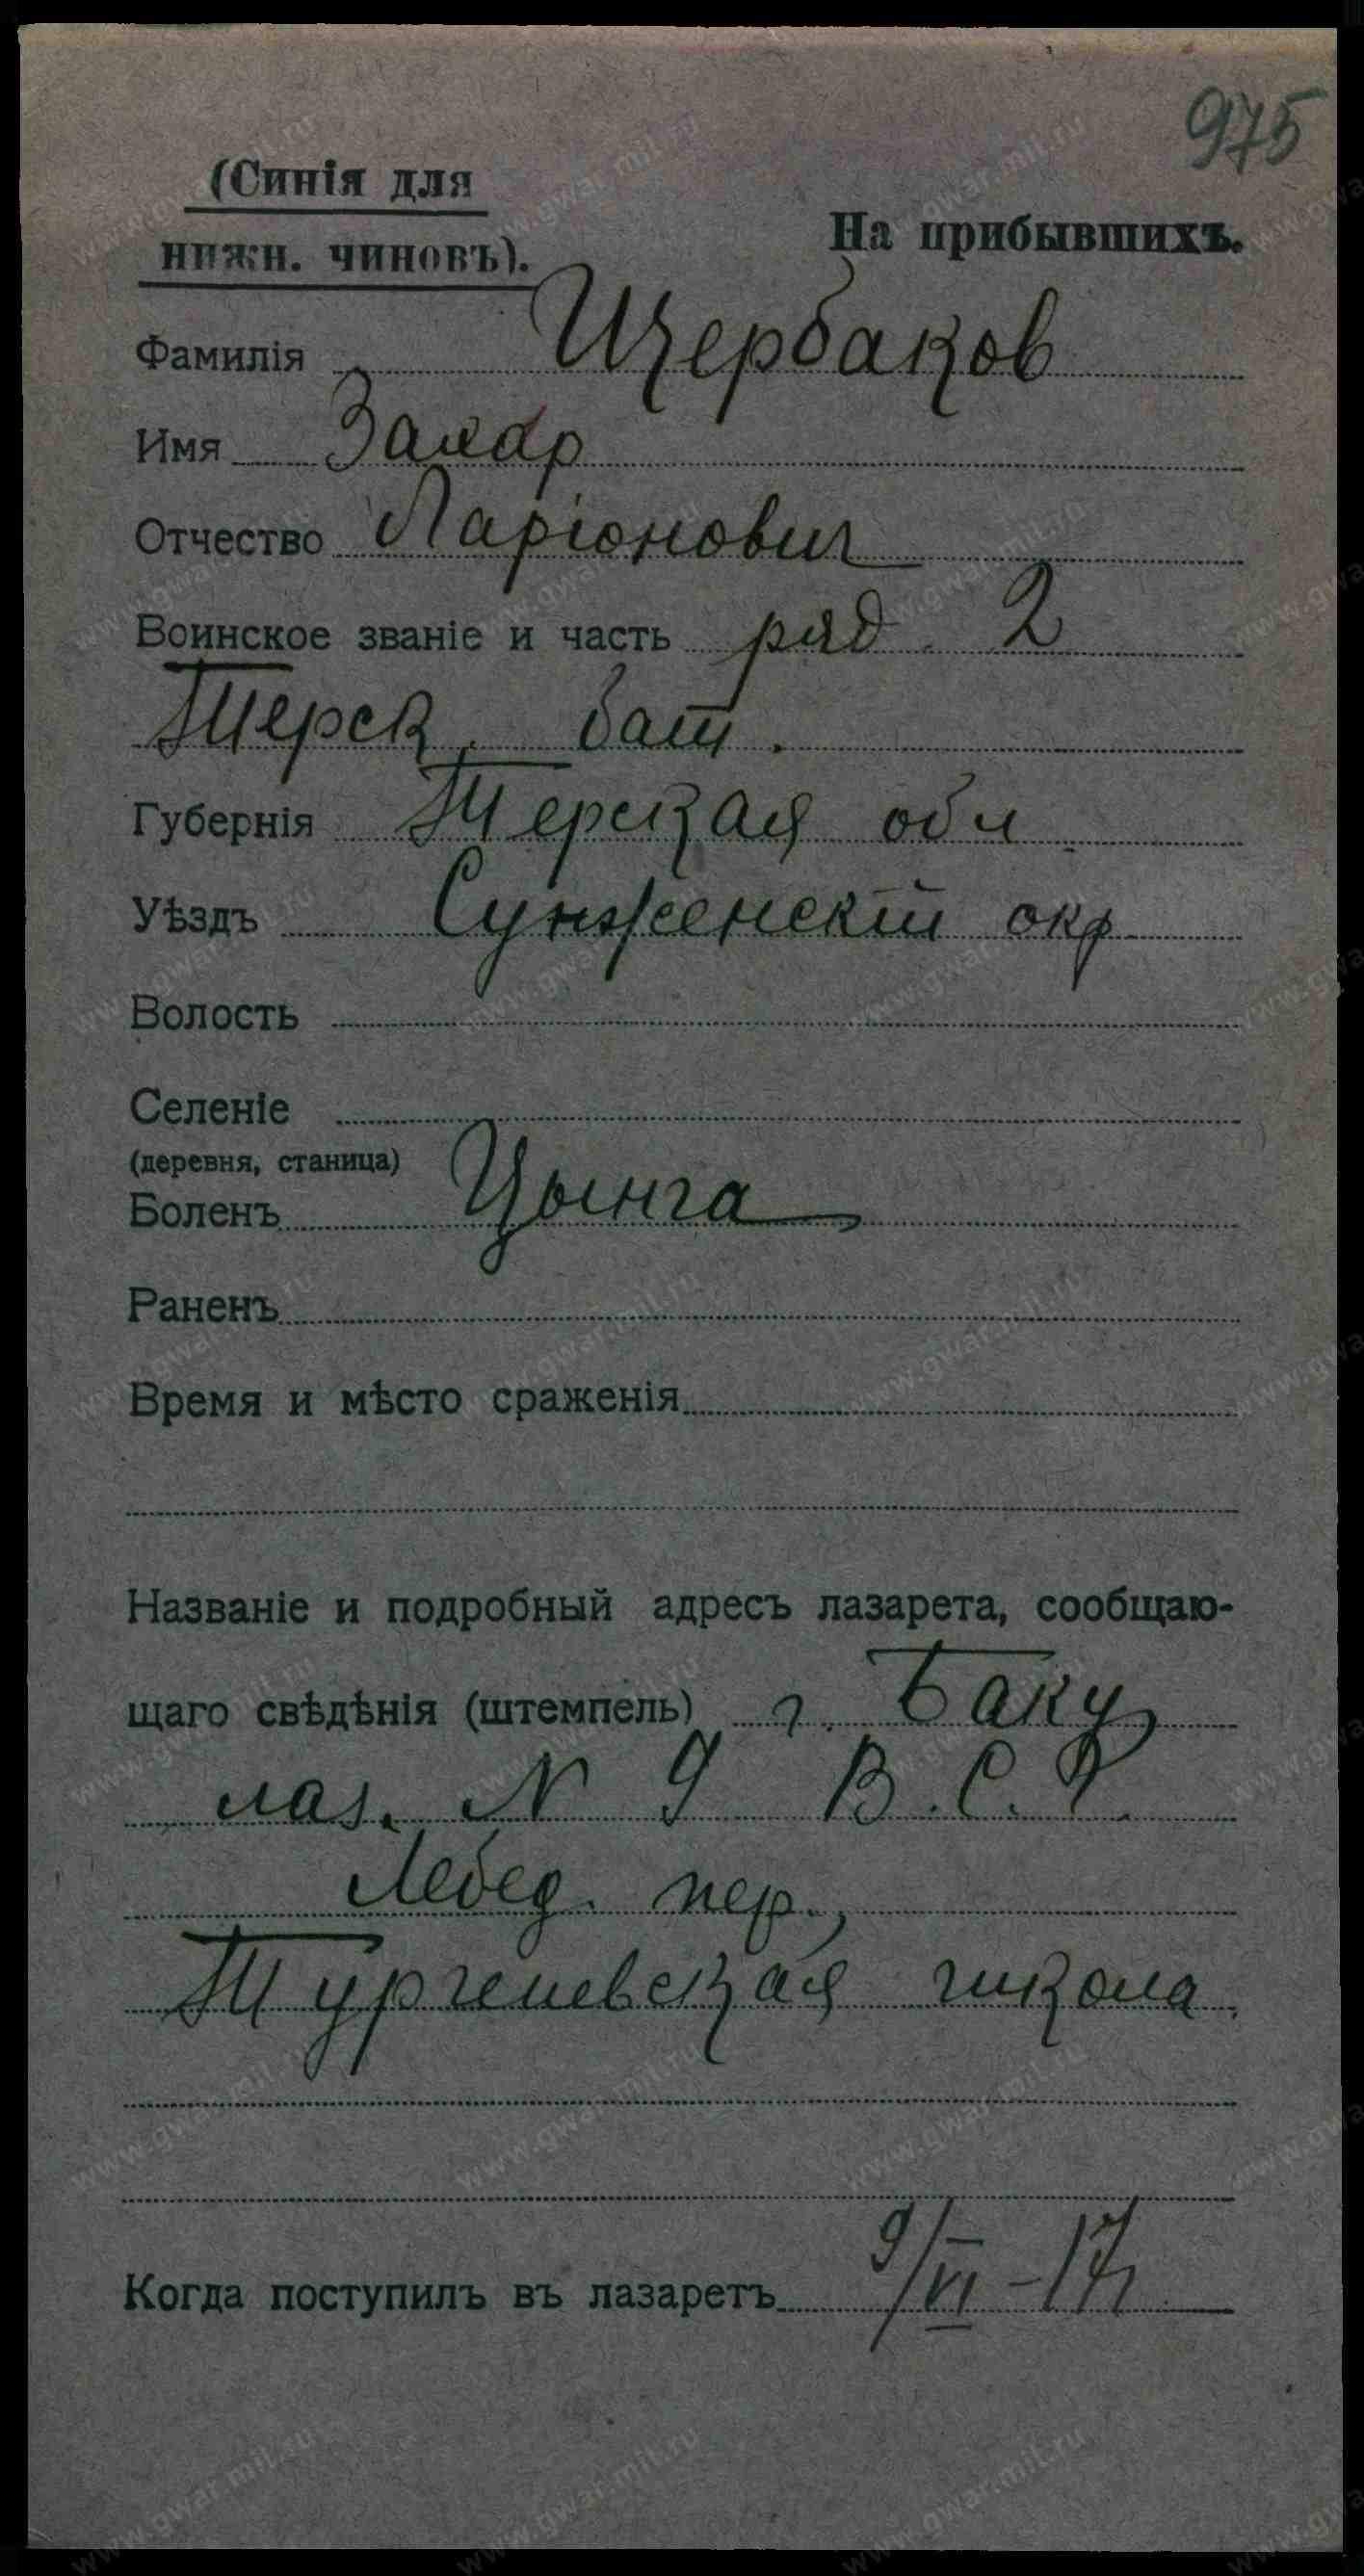 975
(Синія для
нижн. чиновъ).
На прибывшихъ.
Фамилія Щербаков
Имя Захар
Отчество Ларіонович
Воинское званіе и часть ряд. 2
Терск. бат.
Губернія Терская обл
Уѣздъ Сунженскій окр
Волость
Селеніе
(деревня, станица)
Боленъ Цынга
Раненъ
Время и мѣсто сраженія
Названіе и подробный адресъ лазарета, сообщаю-
щаго свѣдѣнія (штемпель) г. Баку
лаз. N 9 В. С. Г.
Лебед. пер.,
Тургеневская школа.
Когда поступилъ въ лазаретъ 9/VI-17
www.gwar.mil.ru